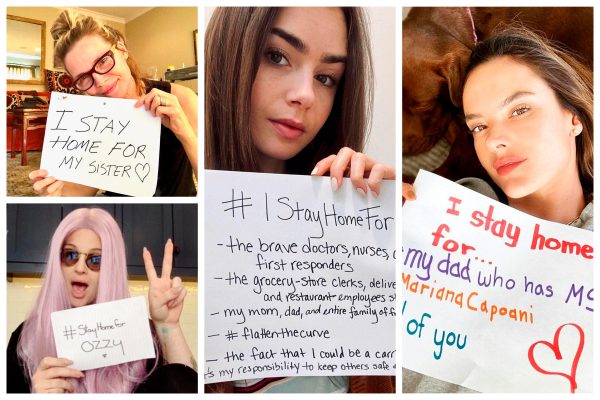 I STAY
HOME FOR
MY SISTER
#StayHomeFor
OZZY
# IStayHomeFor
- the brave doctors, nurses,
first responders
- the grocery-store clerks,
and restaurant employees
- my mom, dad, and entire family of
- #flattenthecurve
- the fact that I could be a
my responsibility to keep others safe
I stay home
for...
my dad who has MS
Mariana Capoani
of you